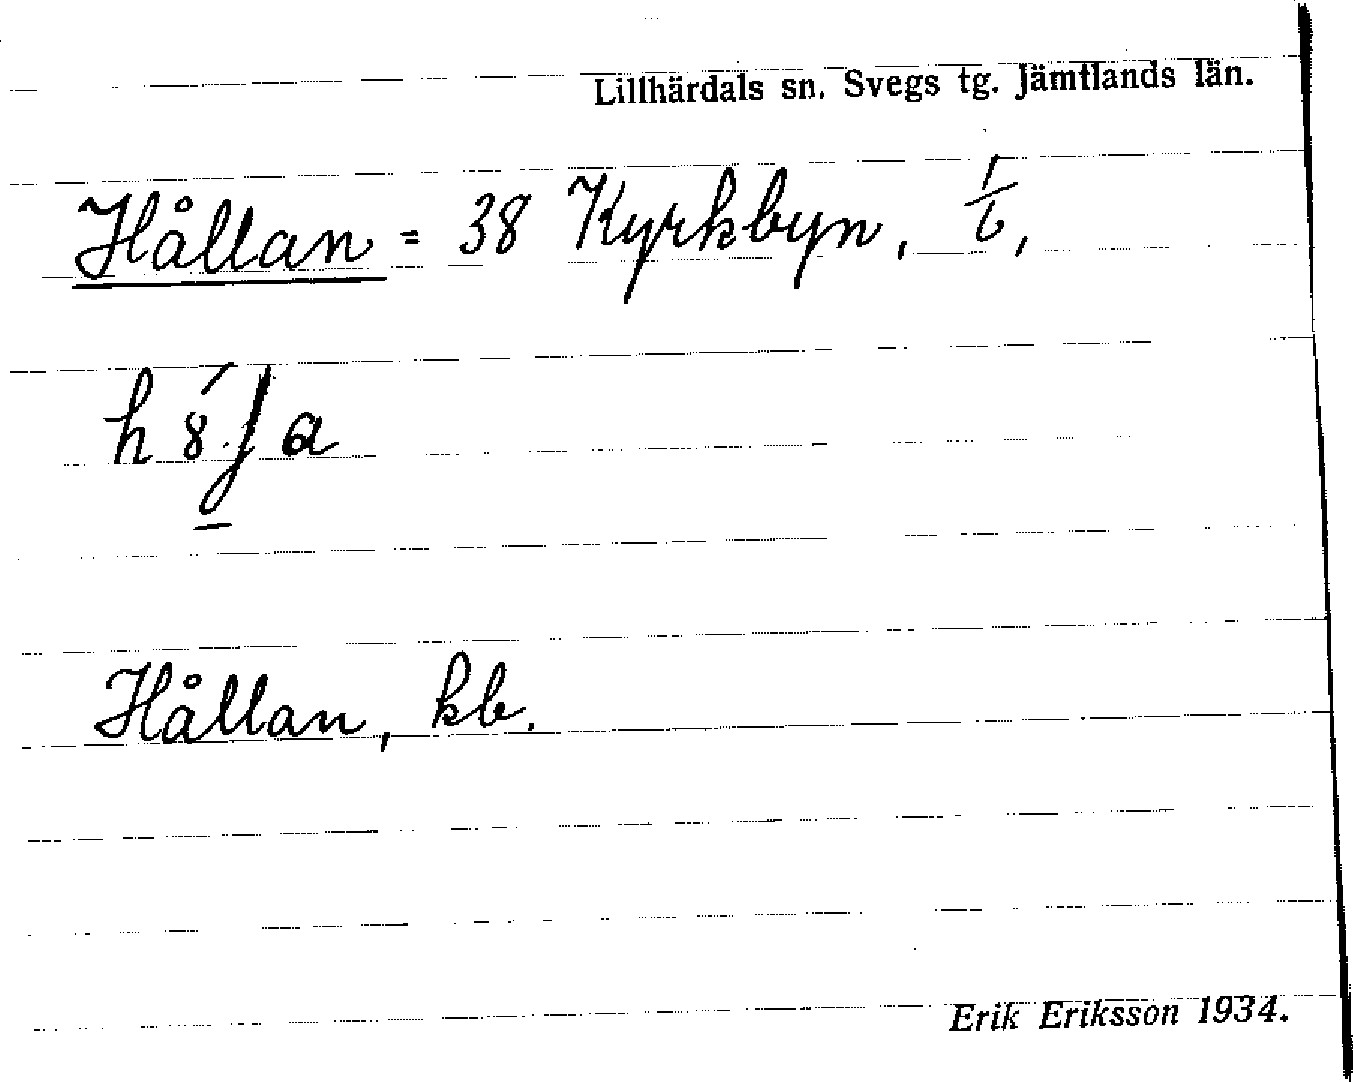 Lillhärdals sn. Svegs tg. Jämtlands län.
Hållan = 38 Kyrkbyn, 1/6,
Hållan, kb.
Erik Eriksson 1934.